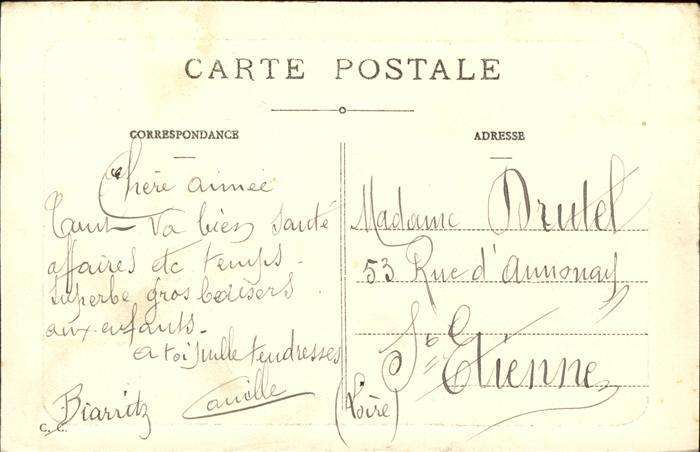 CARTE POSTALE
CORRESPONDANCE
ADRESSE
Chère aimée
Tout va bien santé
affaires etc temps
superbe gros baisers
aux enfants -
a toi mille tendresses
Biarritz Camille
C. C.
Madame Brutel
53 Rue d'Annonay
St Etienne
(Loire)